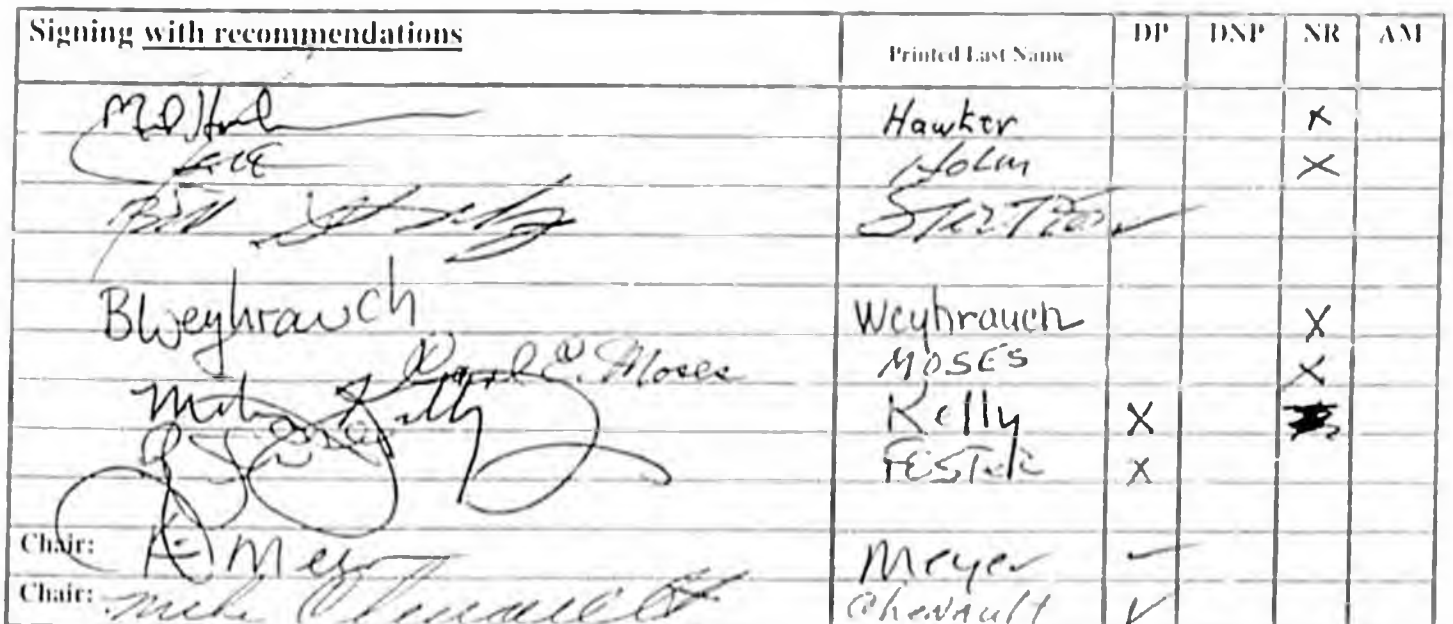 Signing with recommendations Printed Last Name DP DNP NR AM
Hawker X
Holm X
Bill Stoltze Stoltze
BWeyhrauch Weyhrauch X
Carl E. Moses MOSES X
Mike Kelly Kelly X
FOSTER X
Chair: K Meyer Meyer
Chair: Mike Chenault Chenault ✓